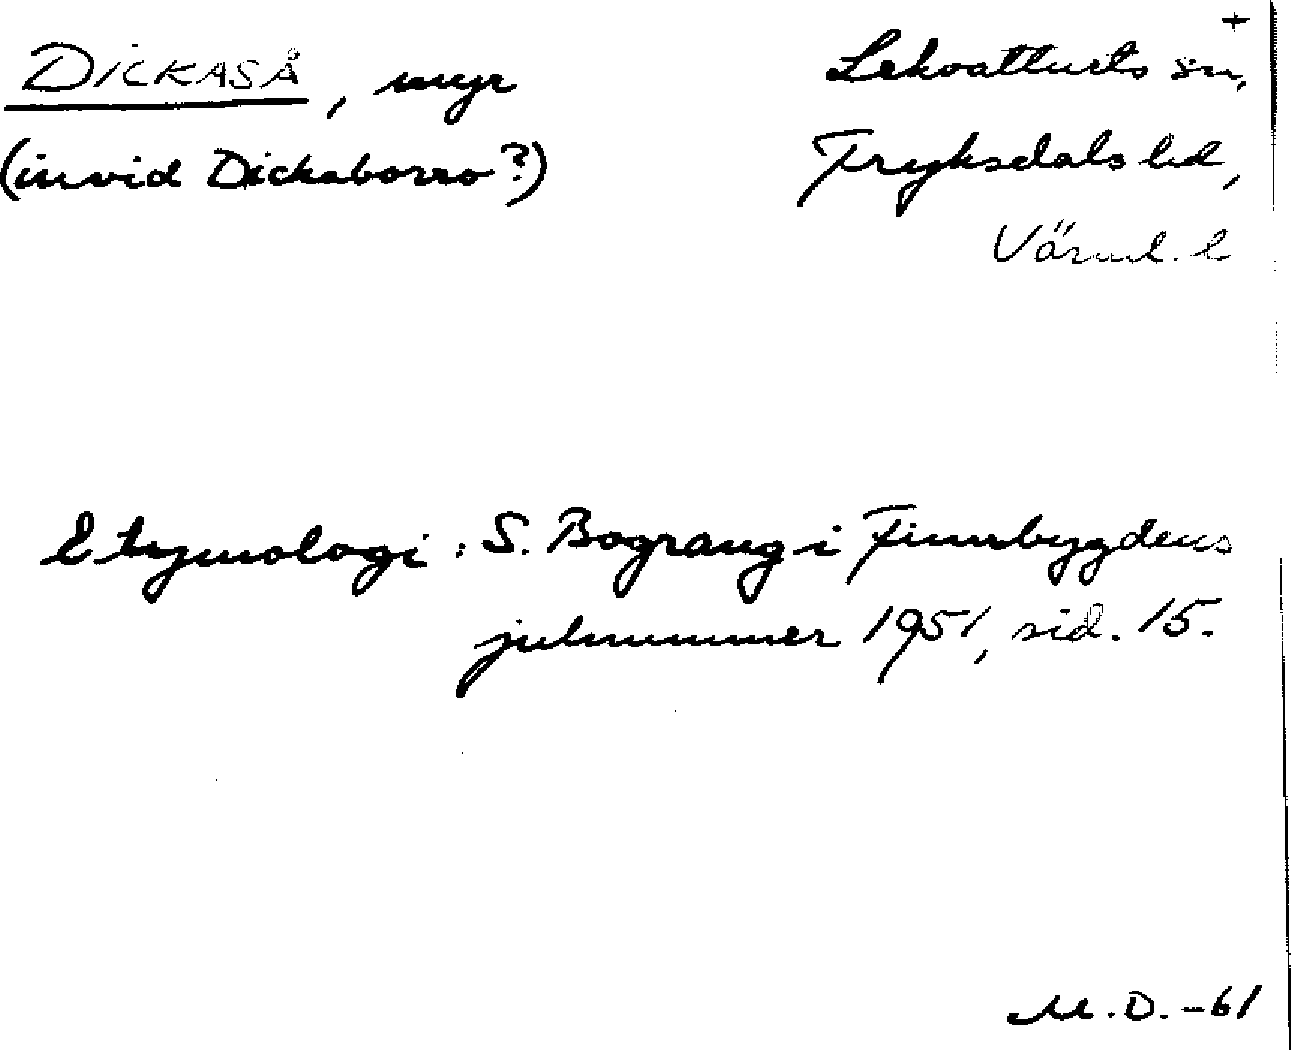 +
DICKASÅ, myr
Lekvattnets sn,
(invid Dickaborro?)
Fryksdals hd,
Värml. l
Etymologi: S. Bograng i Finnbygdens
julnummer 1951, sid. 15.
M.D. -61